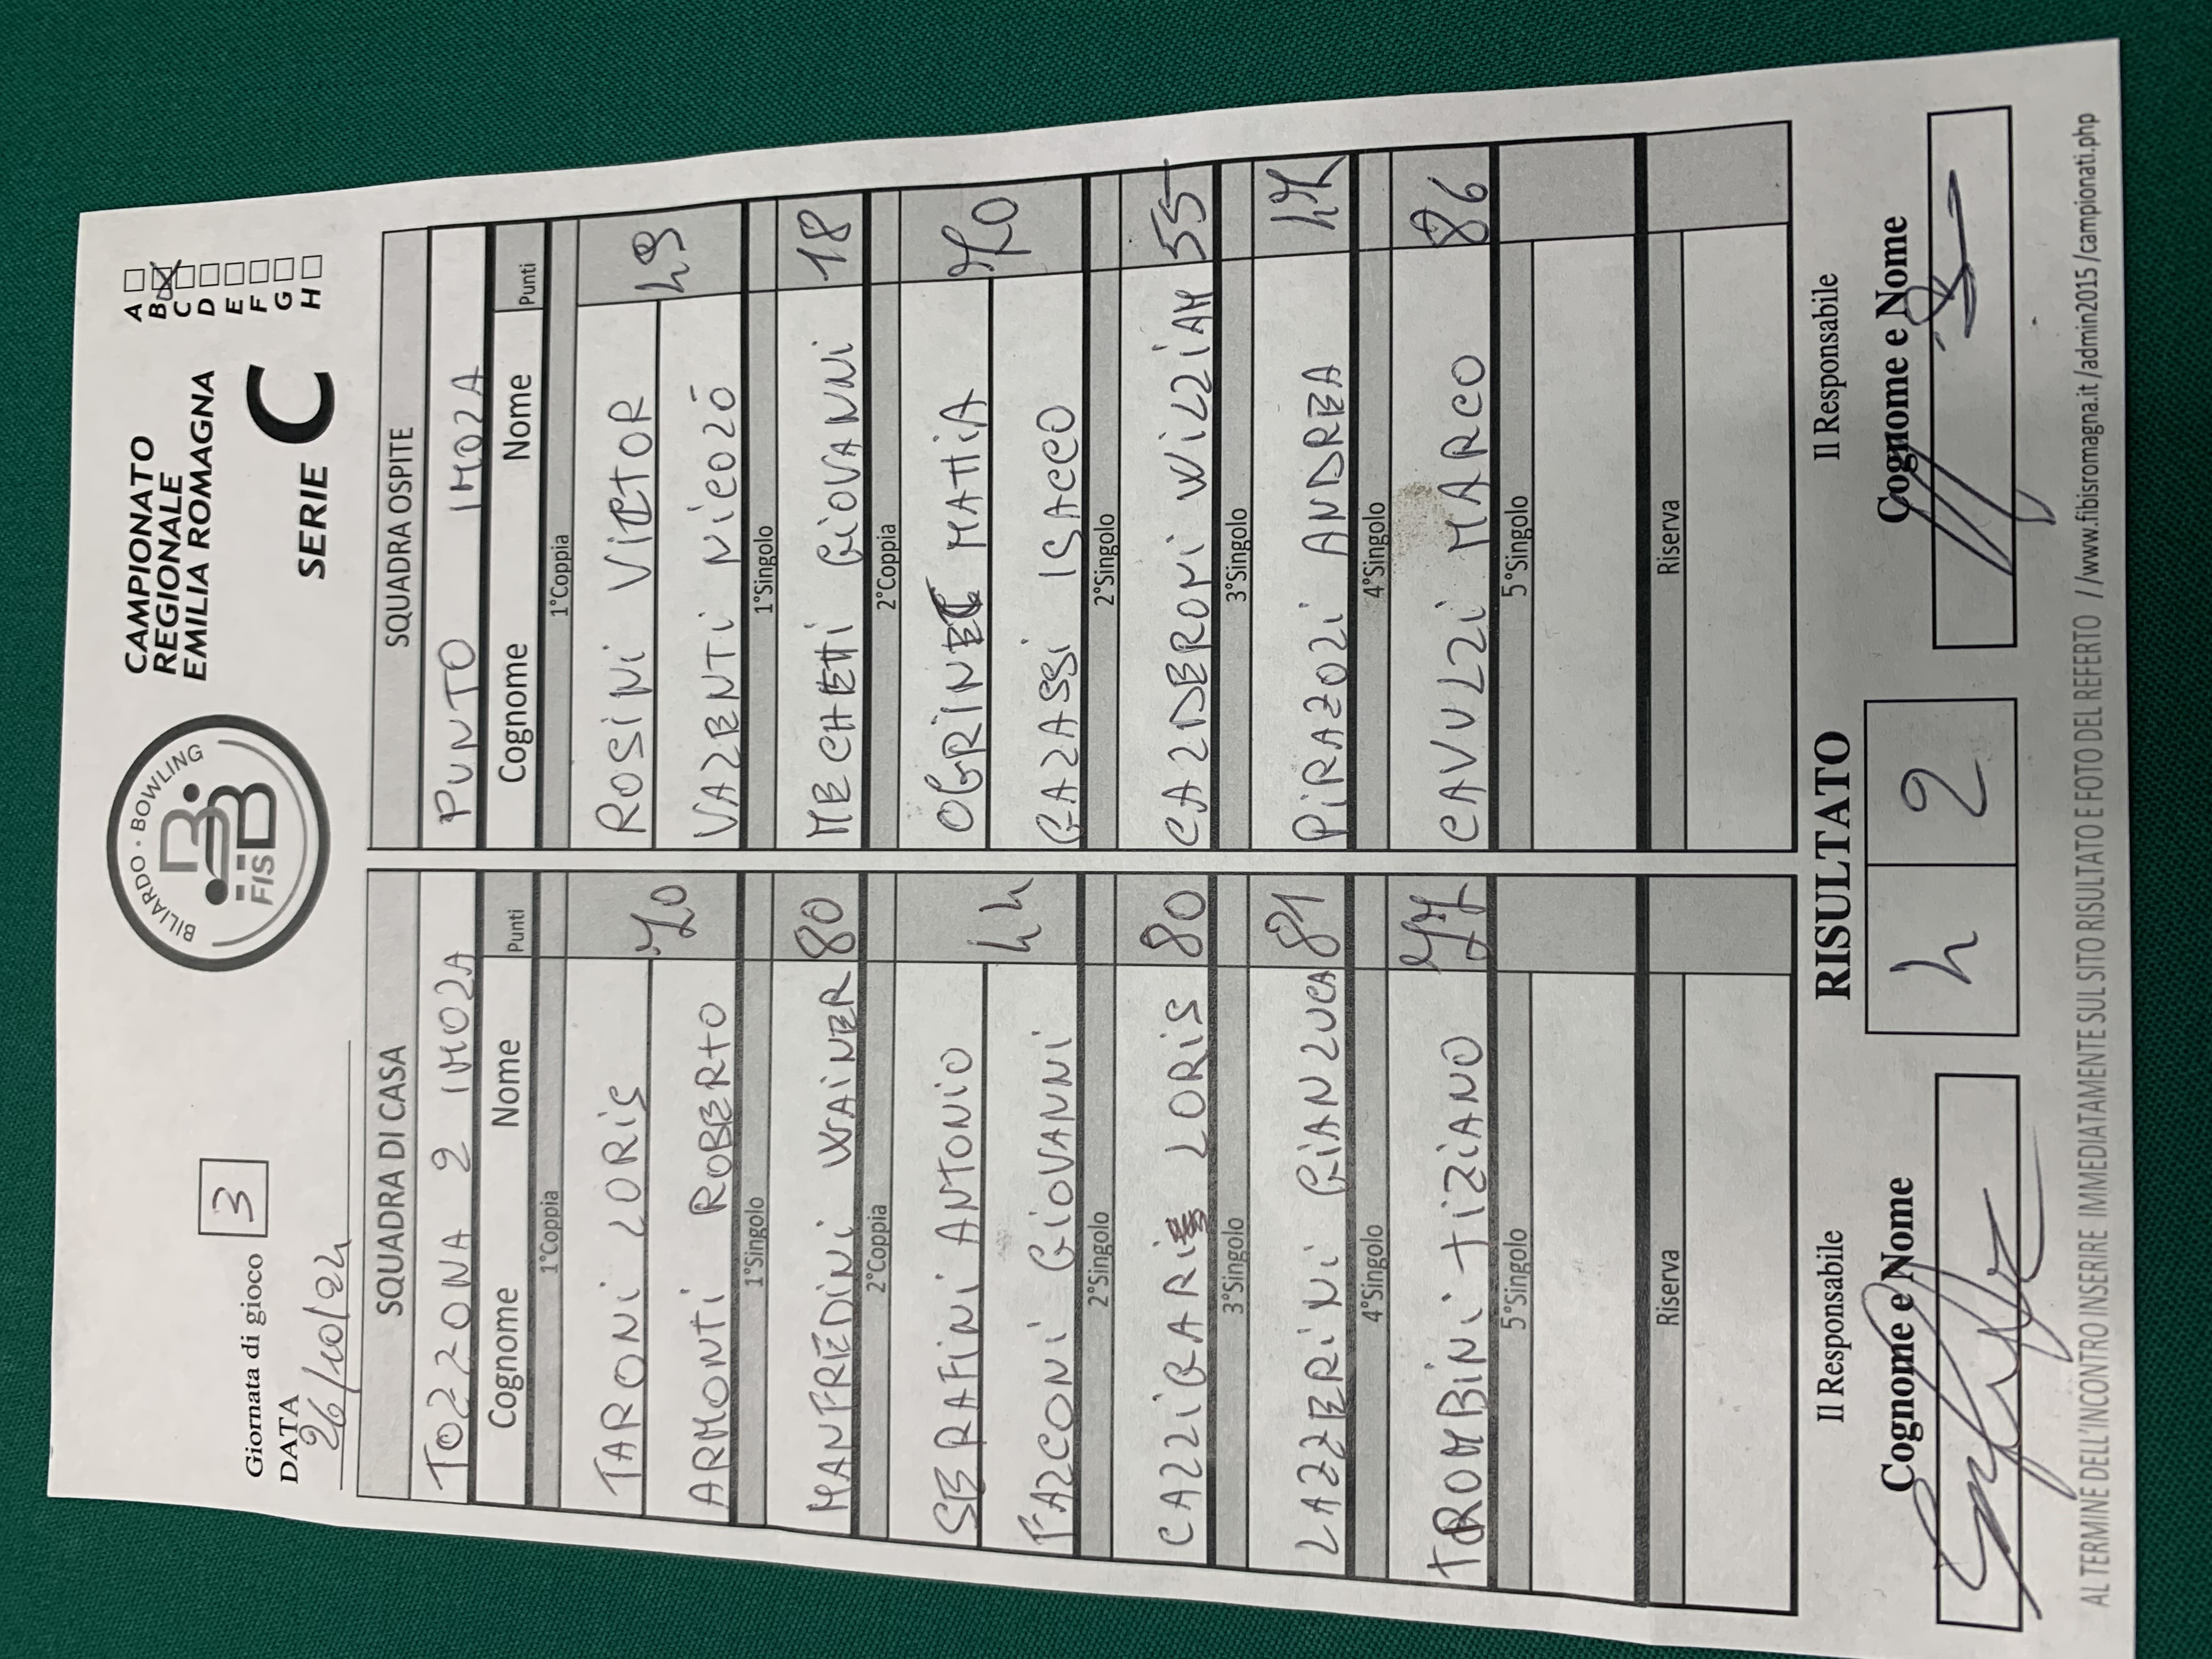 Giornata di gioco 3
DATA
26/10/24
BILIARDO · BOWLING
FISBB
CAMPIONATO
REGIONALE
EMILIA ROMAGNA
SERIE C
A
B
C
D
E
F
G
H
SQUADRA DI CASA
TOZZONA 2 IMOLA
Cognome Nome Punti
1°Coppia
TARONI LORIS
ARMONTI ROBERTO
70
1°Singolo
MANFREDINI WAINER 80
2°Coppia
SERAFINI ANTONIO
FALCONI GIOVANNI
44
2°Singolo
CALLIGARI LORIS 80
3°Singolo
LAZZERINI GIANLUCA 81
4°Singolo
TROMBINI TIZIANO 77
5°Singolo
Riserva
SQUADRA OSPITE
PUNTO IMOLA
Cognome Nome Punti
1°Coppia
ROSINI VICTOR
VALENTI NICOLÒ
49
1°Singolo
MECHETTI GIOVANNI 18
2°Coppia
MATTIA
GALASSI ISACCO
70
2°Singolo
CALDERONI WILLIAM 55
3°Singolo
PIRAZOLI ANDREA 47
4°Singolo
CAVULLI MARCO 86
5°Singolo
Riserva
Il Responsabile
Cognome e Nome
RISULTATO
4 2
Il Responsabile
Cognome e Nome
AL TERMINE DELL'INCONTRO INSERIRE IMMEDIATAMENTE SUL SITO RISULTATO E FOTO DEL REFERTO //www.fibisromagna.it /admin2015 /campionati.php